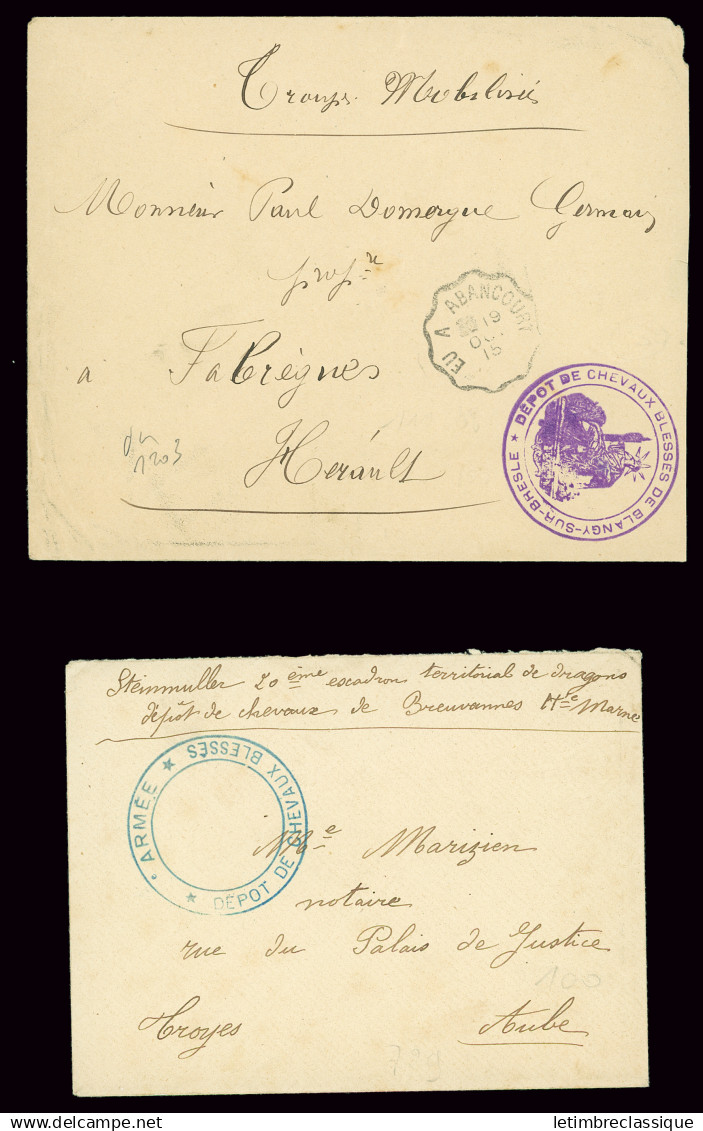 Troupes Mobilisées
Monsieur Paul Domergue Germain
propre
EU A ABANCOURT
19
15
a Fabrègues
DÉPOT DE CHEVAUX BLESSÉS DE BLANGY-SUR-BRESLE ★
1203
Hérault
Steinmuller 20ème escadron territorial de dragons
dépôt de chevaux de Breuvannes Hte Marne
• ARMÉE ★
★ DÉPOT DE CHEVAUX BLESSÉS
Me Marizien
notaire
rue du Palais de Justice
100
Troyes Aube
799
letimbreclassique